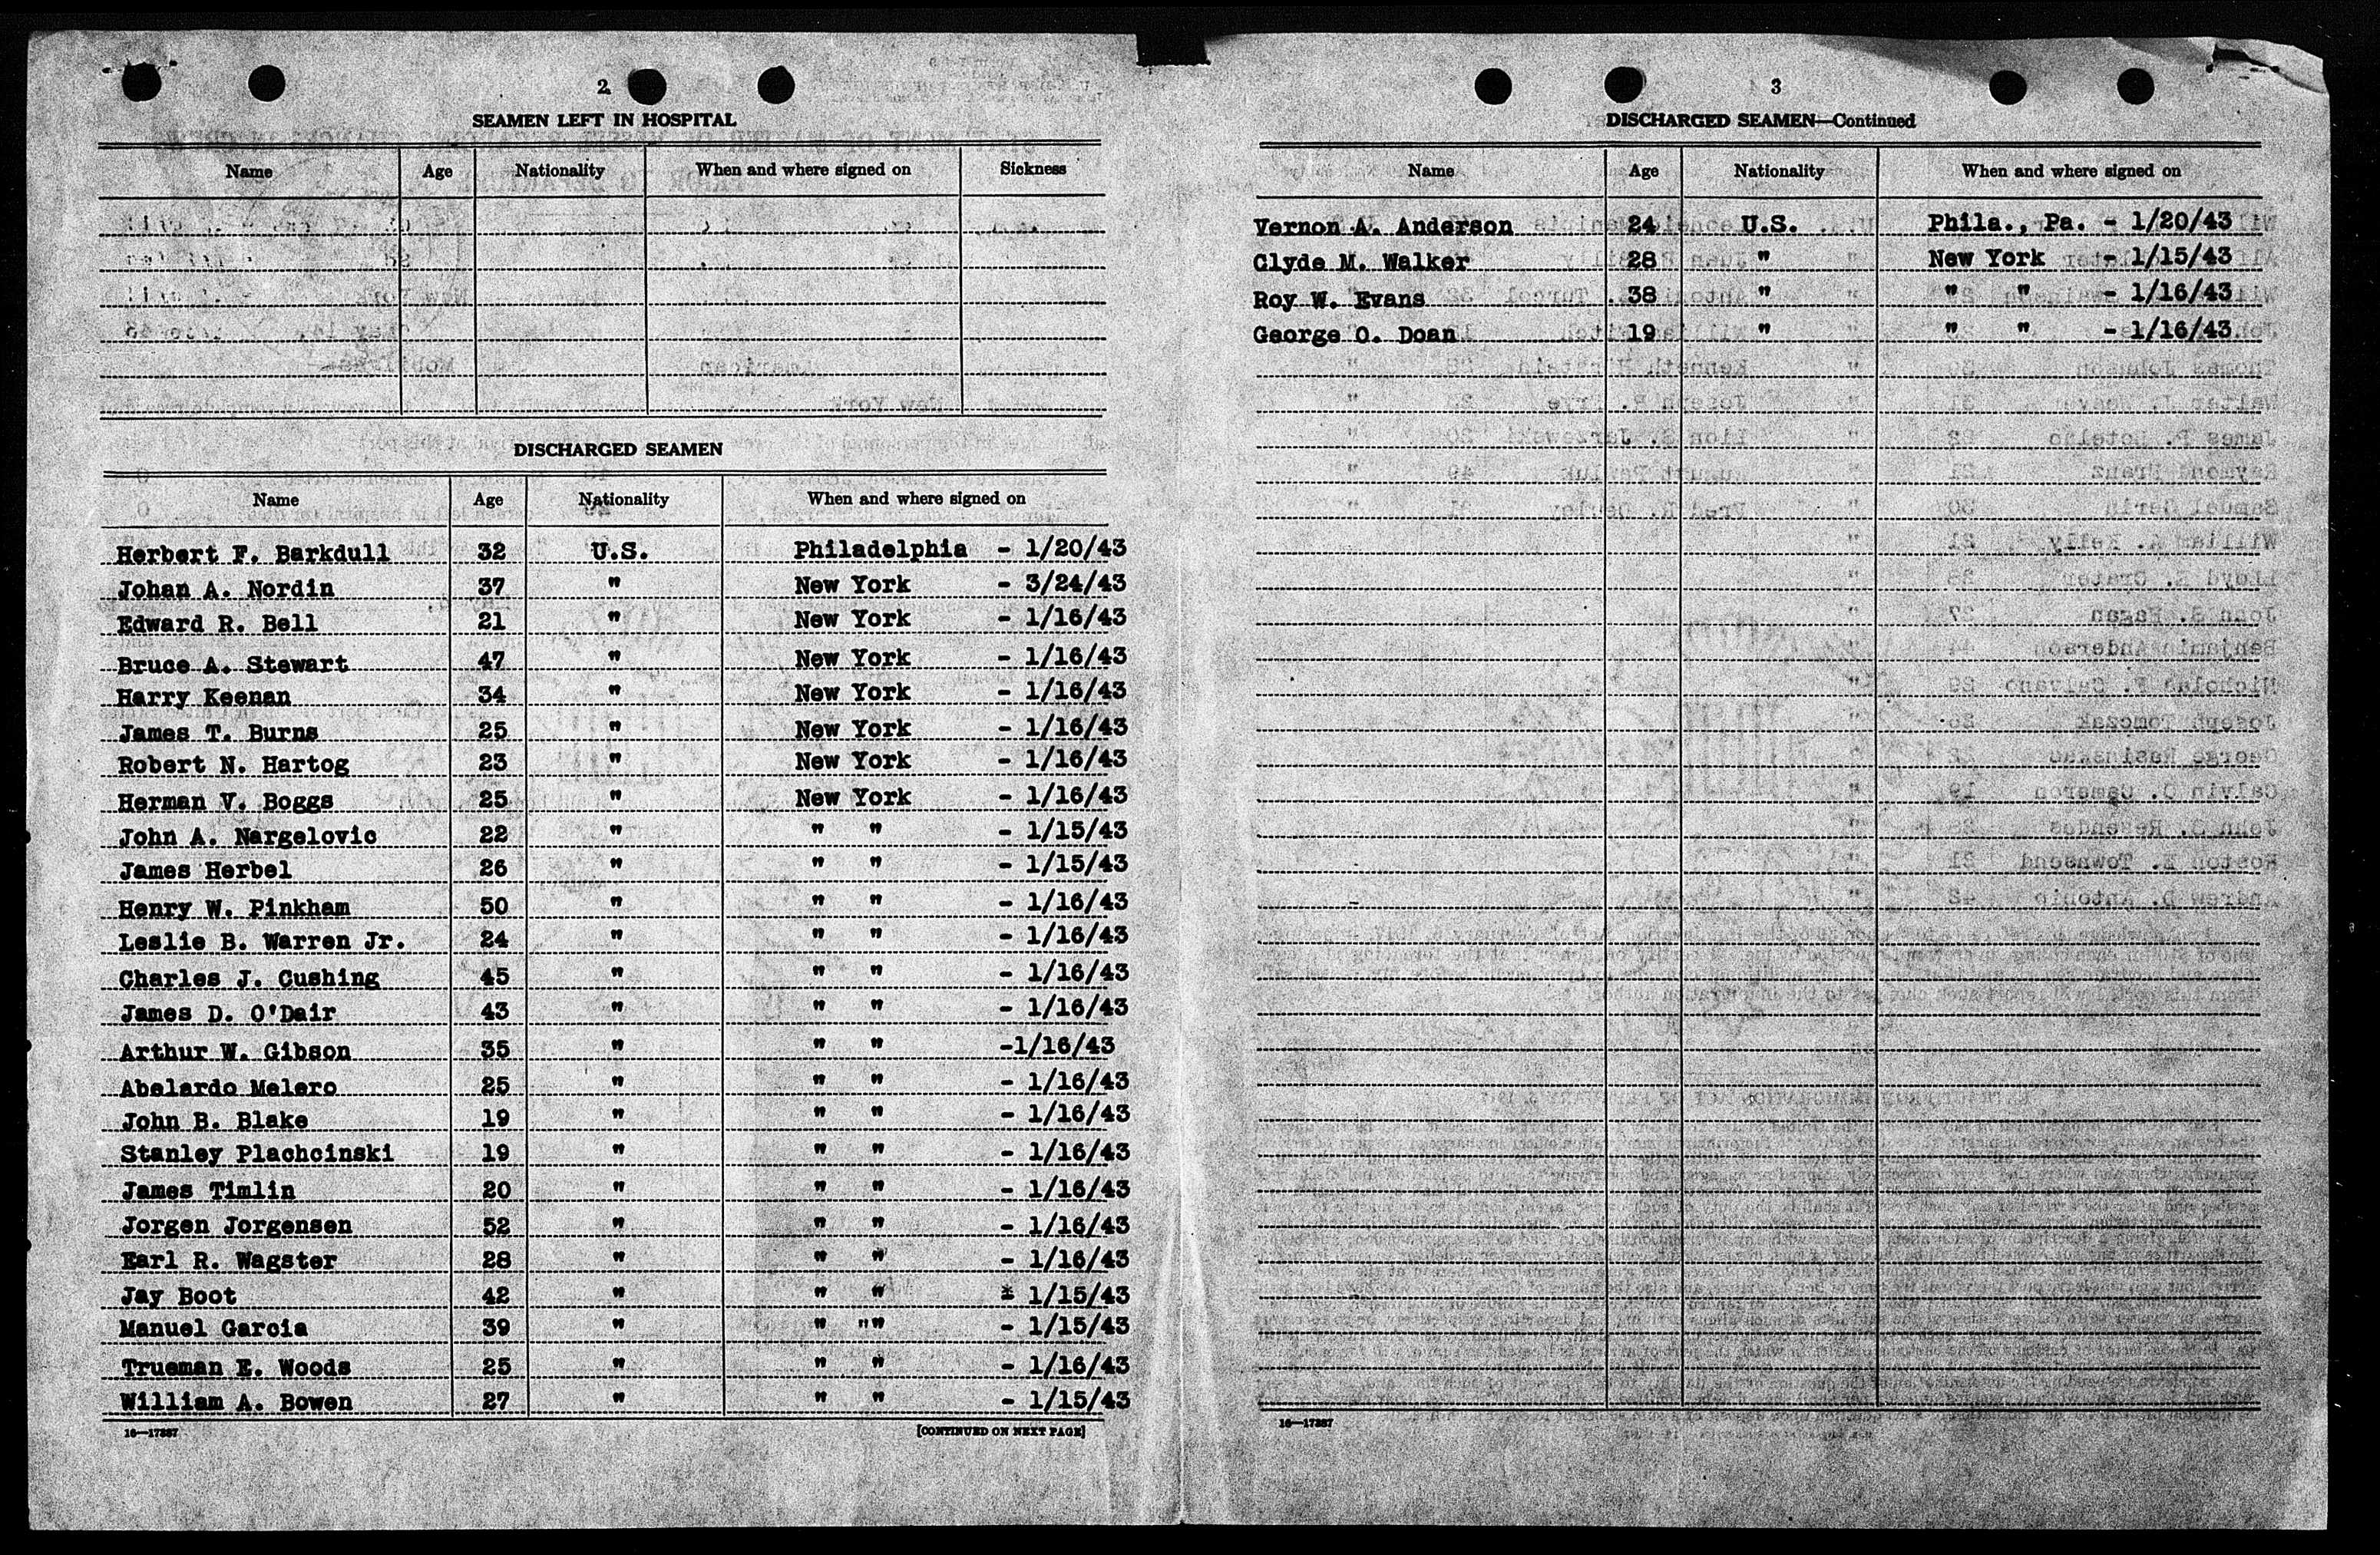 2
SEAMEN LEFT IN HOSPITAL
Name Age Nationality When and where signed on Sickness
DISCHARGED SEAMEN
Name Age Nationality When and where signed on
Herbert F. Barkdull 32 U.S. Philadelphia - 1/20/43
Johan A. Nordin 37 " New York - 3/24/43
Edward R. Bell 21 " New York - 1/16/43
Bruce A. Stewart 47 " New York - 1/16/43
Harry Keenan 34 " New York - 1/16/43
James T. Burns 25 " New York - 1/16/43
Robert N. Hartog 23 " New York - 1/16/43
Herman V. Boggs 25 " New York - 1/16/43
John A. Nargelovic 22 " " " - 1/15/43
James Herbel 26 " " " - 1/15/43
Henry W. Pinkham 50 " " " - 1/16/43
Leslie B. Warren Jr. 24 " " " - 1/16/43
Charles J. Cushing 45 " " " - 1/16/43
James D. O'Dair 43 " " " - 1/16/43
Arthur W. Gibson 35 " " " -1/16/43
Abelardo Melero 25 " " " - 1/16/43
John B. Blake 19 " " " - 1/16/43
Stanley Plachcinski 19 " " " - 1/16/43
James Timlin 20 " " " - 1/16/43
Jorgen Jorgensen 52 " " " - 1/16/43
Earl R. Wagster 28 " " " - 1/16/43
Jay Boot 42 " " " * 1/15/43
Manuel Garcia 39 " " "" - 1/15/43
Trueman E. Woods 25 " " " - 1/16/43
William A. Bowen 27 " " " - 1/15/43
16—17387 [CONTINUED ON NEXT PAGE]
3
DISCHARGED SEAMEN—Continued
Name Age Nationality When and where signed on
Vernon A. Anderson 24 U.S. Phila., Pa. - 1/20/43
Clyde M. Walker 28 " New York - 1/15/43
Roy W. Evans 38 " " " - 1/16/43
George O. Doan 19 " " " - 1/16/43
16—17387